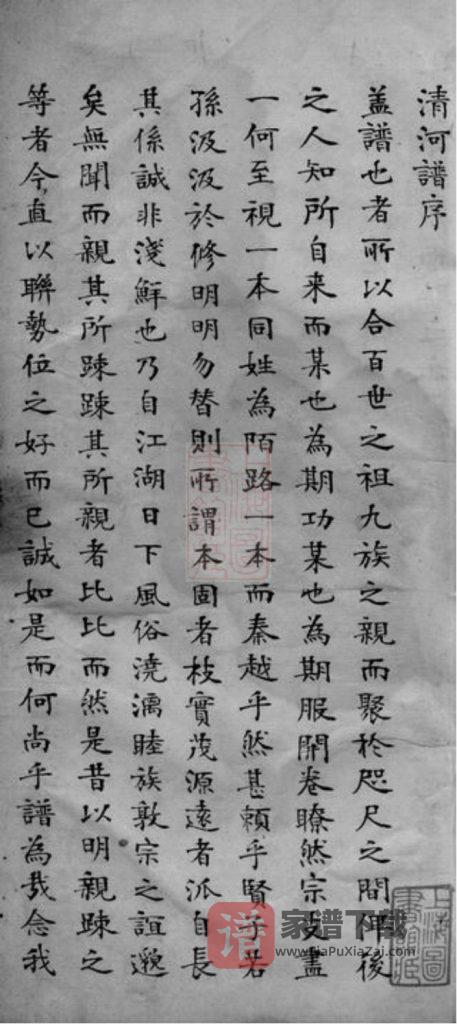 清河譜序
盖譜也者所以合百世之祖九族之親而聚於咫尺之間俾後
之人知所自来而某也為期功某也為期服開卷瞭然宗支盡
一何至視一本同姓為陌路一本而秦越乎然甚頼乎賢子若
孫汲汲於修明明勿替則所謂本固者枝實茂源遠者派自長
其係誠非淺鮮也乃自江湖日下風俗澆漓睦族敦宗之誼邈
矣無聞而親其所踈踈其所親者比比而然是昔以明親踈之
等者今直以聯勢位之好而已誠如是而何尚乎譜為哉念我
上海圖書館藏
谱 家谱下载
www.jiaPuXiaZai.com